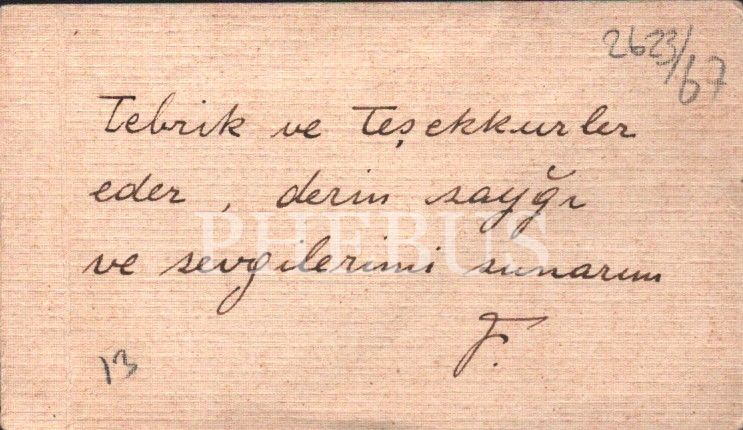 2623/67
Tebrik ve Teşekkurler
eder, derin sayğı
ve sevgilerimi sunarım
PHEBUS
F.
13